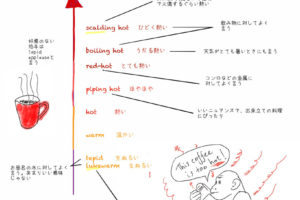 scalding hot ひどく熱い
飲み物に対してよく言う
boiling hot うだる熱い
天気がとても暑いときにも言う
red-hot とても熱い
コンロなどの金属に対してよく言う
piping hot ほやほや
hot 熱い
いいニュアンスで、出来立ての料理にぴったり
warm 温かい
tepid なまぬるい
lukewarm なまぬるい
お風呂の水に対してよく言う。あまりいい意味じゃない
拍手のない
tepid applauseと言う
This coffee is too hot!